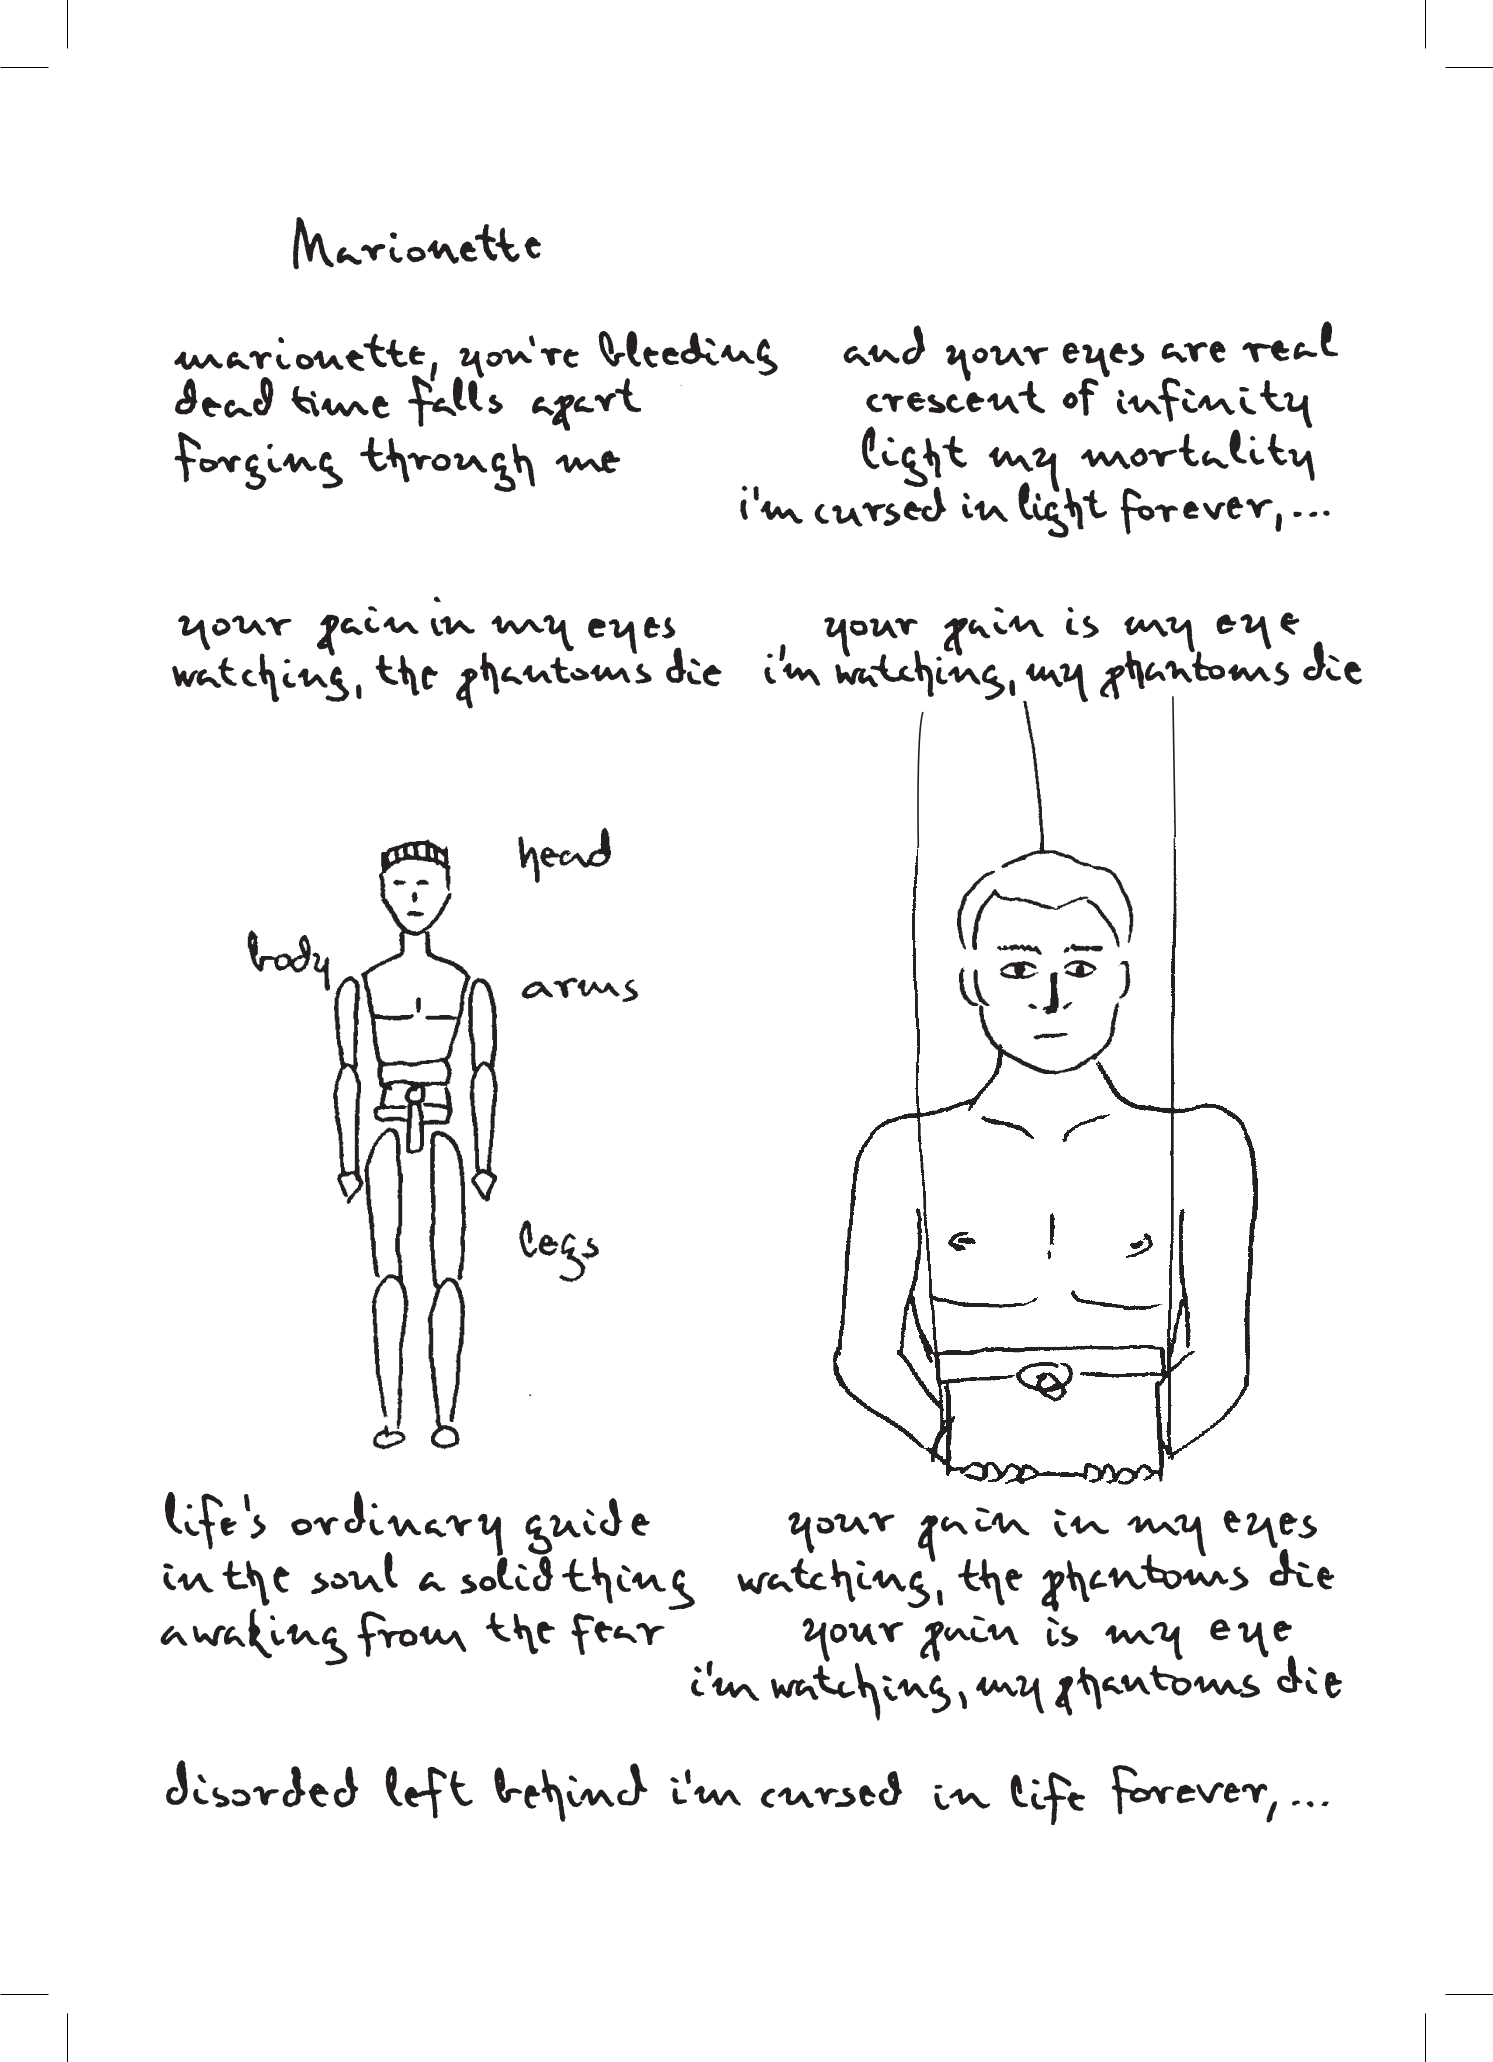 Marionette
marionette, you're bleeding
dead time falls apart
forging through me
and your eyes are real
crescent of infinity
light my mortality
i'm cursed in light forever,...
your pain in my eyes
watching, the phantoms die
your pain is my eye
i'm watching, my phantoms die
head
body
arms
legs
life's ordinary guide
in the soul a solid thing
awaking from the fear
your pain in my eyes
watching, the phantoms die
your pain is my eye
i'm watching, my phantoms die
disorded left behind i'm cursed in life forever,...